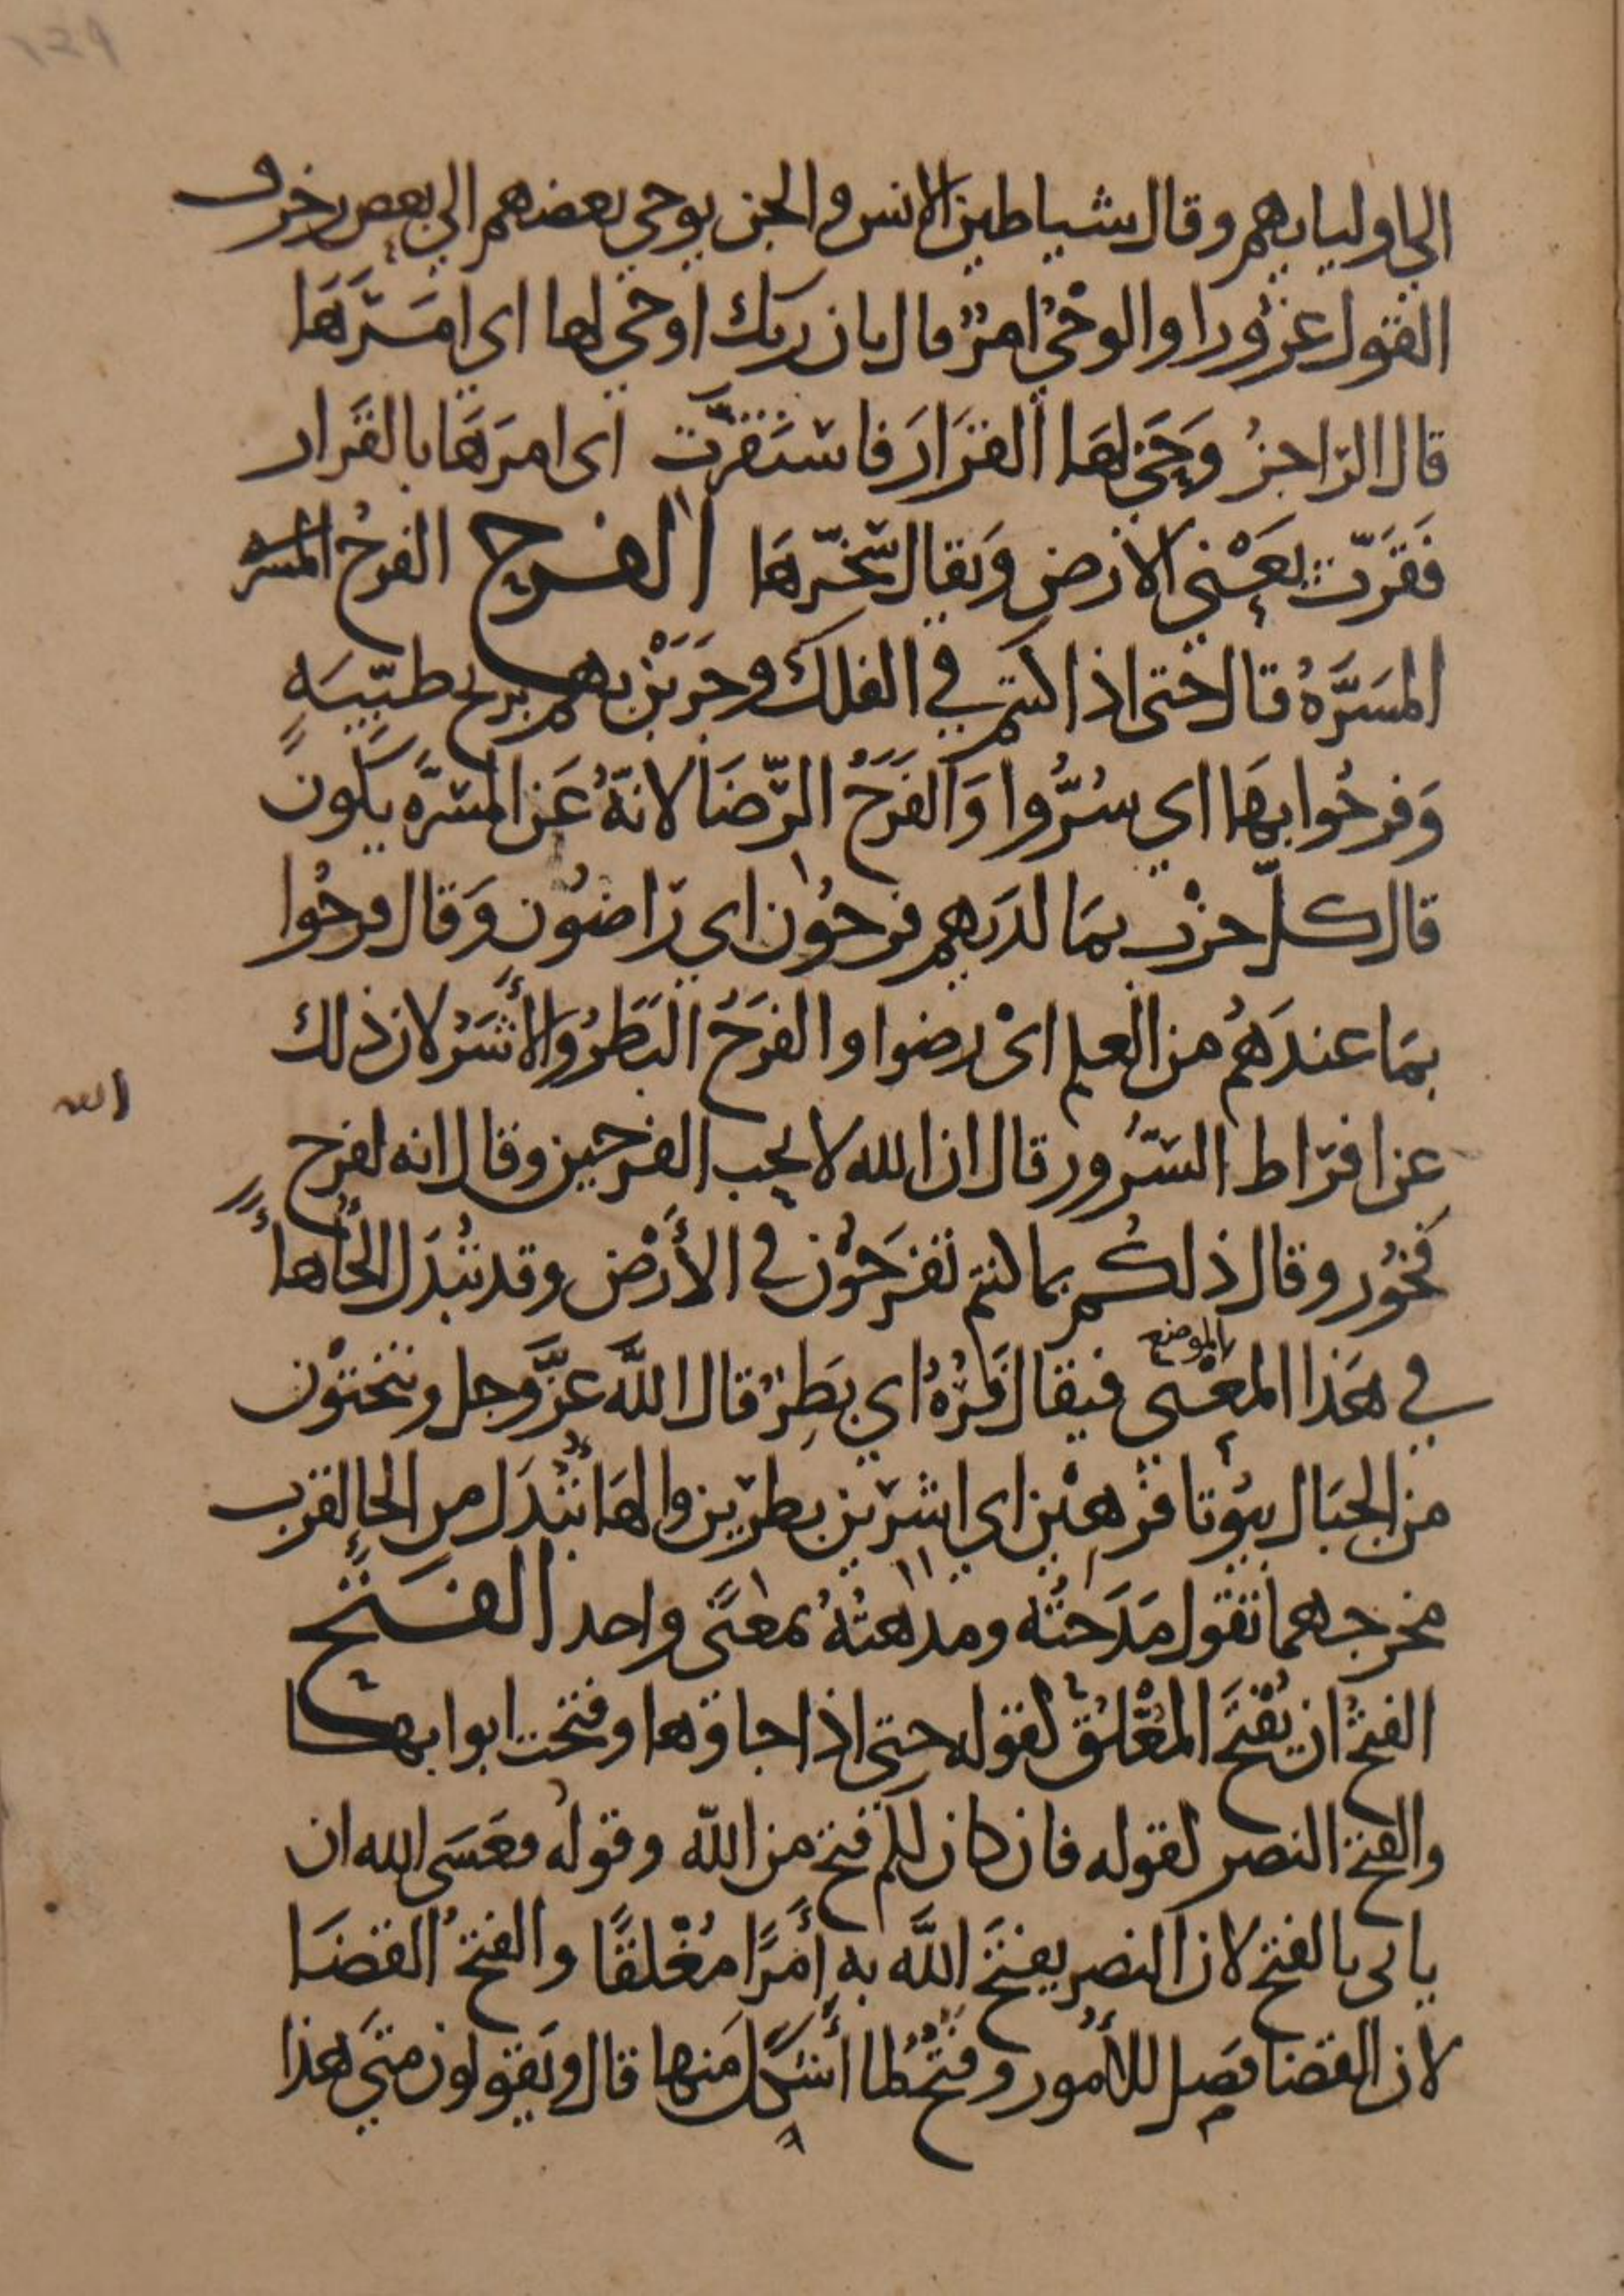 الى اوليايهم وقال شياطين الانس والجن يوحي بعضهم الي بعض زخرف
القول غرورا والوحْيُ امرٌ قال بان ربك اوحي لها اي امَرَهَا
قال الراجزُ وَحَى لهَا القرَارَ فاستَقرّت اى امرَهَا بالقَرار
فَقَرّت يَعْني الارض وَيقال سَخّرهَا الفرح الفرحُ المسر
المسَرَّهُ قال حتى اذا كنتم في الفلك وجَرَيْن بهم بريح طيّبَهٍ
وَفرحُوا بهَا اي سُرُّوا وَالفَرَحُ الرّضَا لانهُ عَن المسَرَّهِ يَكُونُ
قال كلّ حزْب بمَا لدَيهم فرحُون اي رَاضُون وَقال فرحُوا
بمَا عندَهُم من العلم اىْ رضوا والفرَحُ البَطَرُ وَالأَشَرُ لان ذلك
عن افرَاط السّرُور قال ان الله لا يحب الفرحين وقال انه لفرح
الله
فَخُور وقال ذلكُم بما كنتم تفرَحُوْن في الأَرْض وقد تُبْدَل الحَأُ هاءً
في هَذا المعْنى فيقال فَرْهُ اي بَطِرٌ قال اللهُ عَزَّ وجل وتنحتوْن
بالموضع
من الجبَال بيُوتا فرهيْن اي اشريْن بطريْن والهَا تُبْدَل من الحا لقرب
مخرجهما تقول مَدَحتُه ومدهتُهُ بمعنًى واحد الفتَح
الفتحُ ان يُفْتَحَ المُغْلَقُ لقوله حتى اذا جاوها وفتحت ابوابها
والفتح النصر لقوله فان كان لكم فتح من الله وقوله فعَسَى الله ان
ياتى بالفتح لان النصر يفتَحُ اللهُ به أَمْرًا مُغْلقًا والفتحُ القضَا
لان القضا فصل للأُمُور وفتحٌ لما أشكَلَ منها قال وَيَقولون متَى هذا